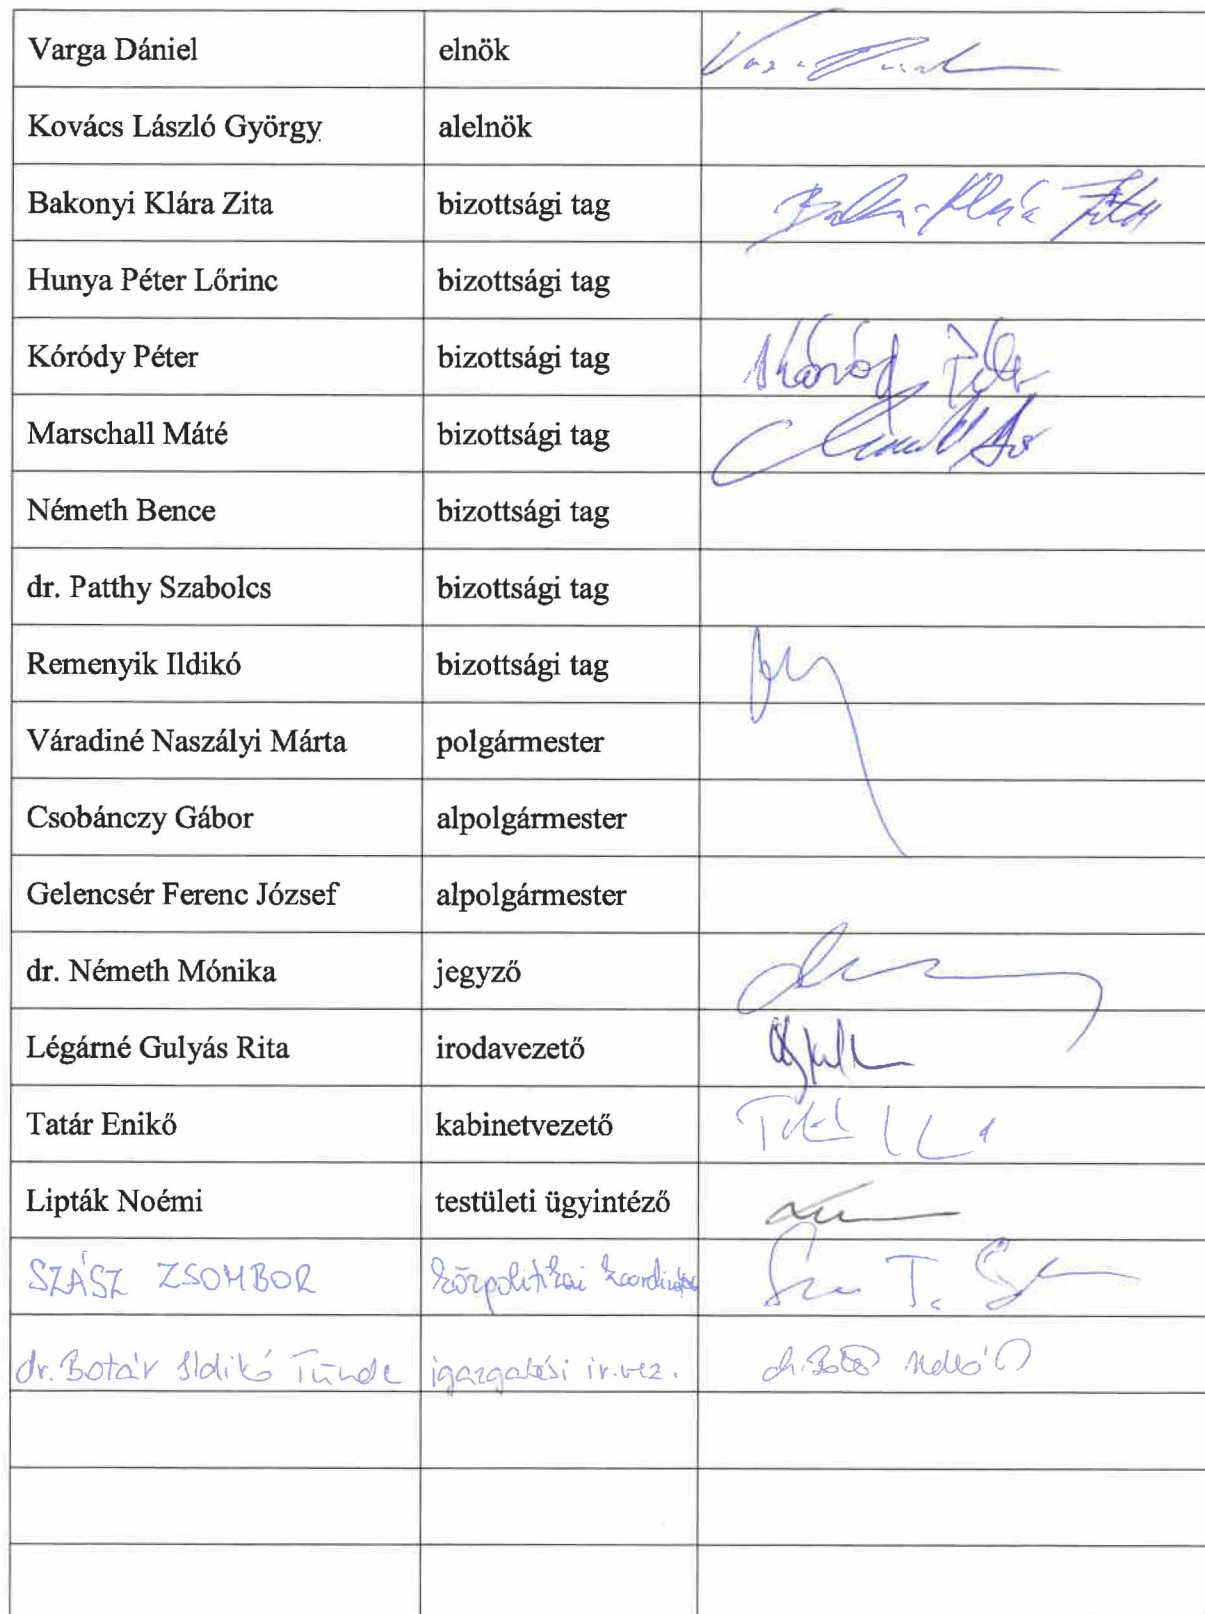 Varga Dániel elnök
Kovács László György alelnök
Bakonyi Klára Zita bizottsági tag
Hunya Péter Lőrinc bizottsági tag
Kóródy Péter bizottsági tag Kóródy Péter
Marschall Máté bizottsági tag
Németh Bence bizottsági tag
dr. Patthy Szabolcs bizottsági tag
Remenyik Ildikó bizottsági tag
Váradiné Naszályi Márta polgármester
Csobánczy Gábor alpolgármester
Gelencsér Ferenc József alpolgármester
dr. Németh Mónika jegyző
Légárné Gulyás Rita irodavezető
Tatár Enikő kabinetvezető
Lipták Noémi testületi ügyintéző
SZÁSZ ZSOMBOR közpolitikai koordinátor
dr. Botár Ildikó Tünde igazgatási ir.vez.